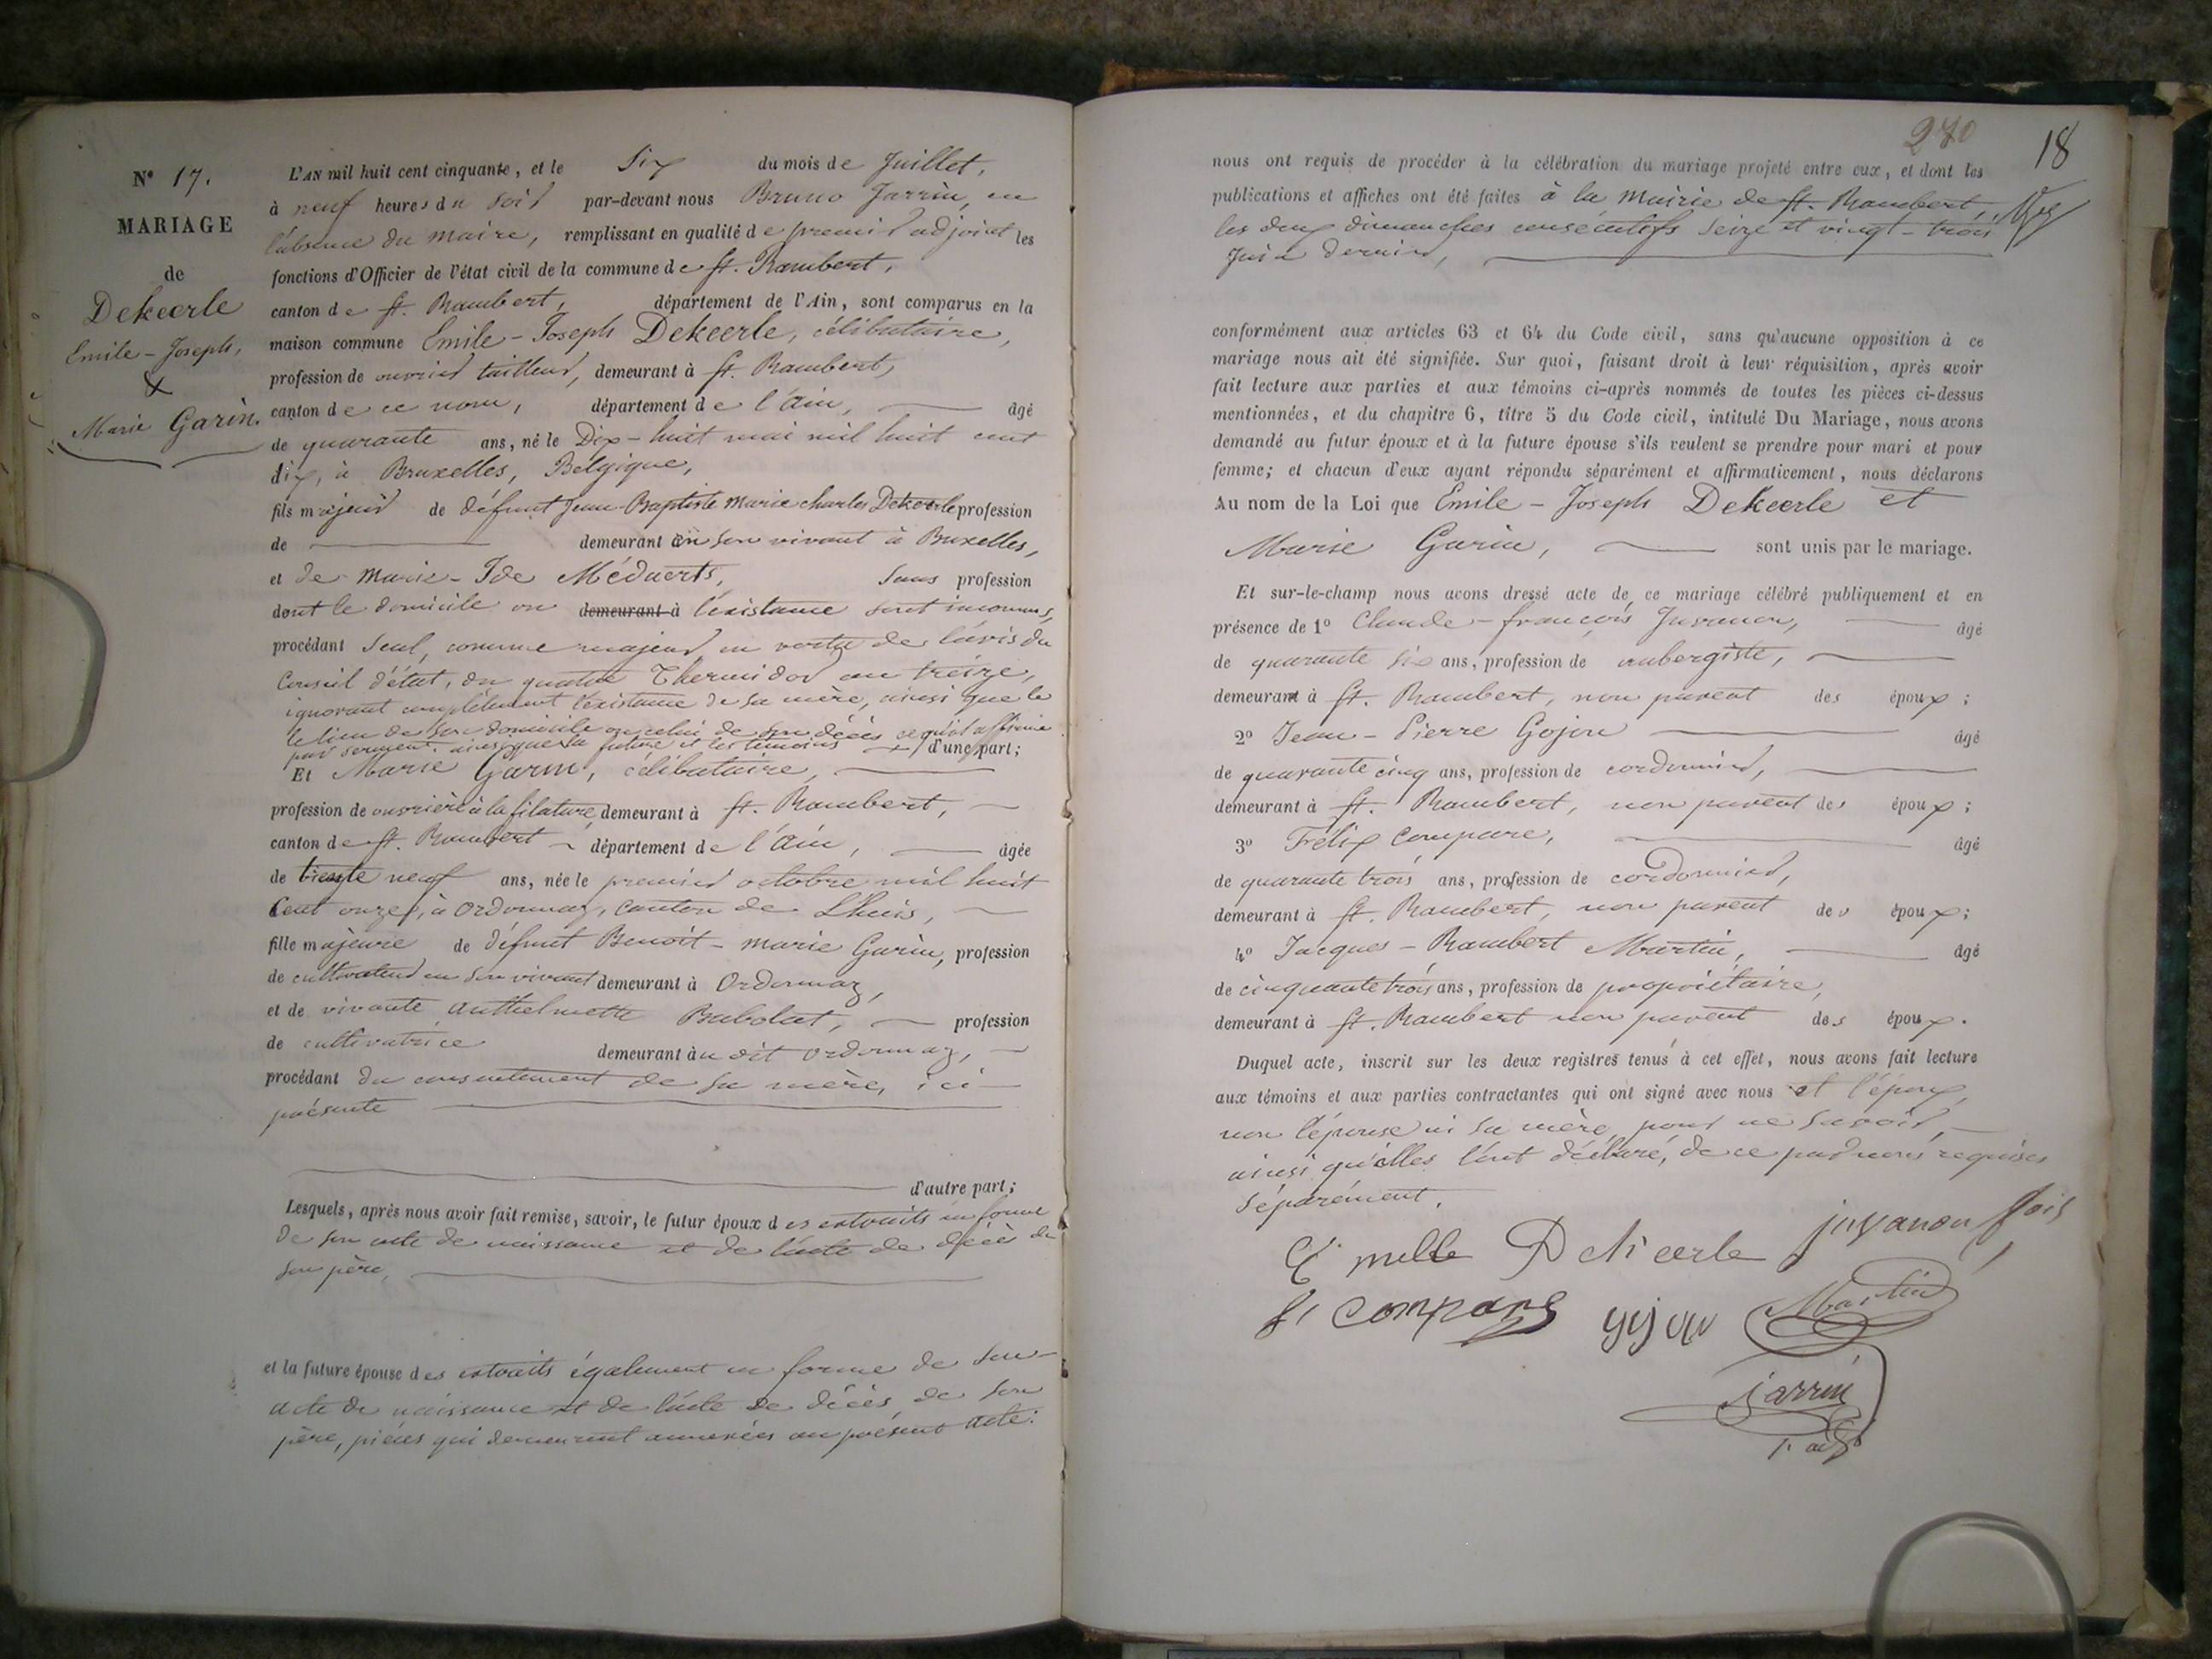 N° 17.
MARIAGE
de
Dekeerle
Emile-Joseph,
&
Marie Garin.
L'AN mil huit cent cinquante, et le Six du mois de Juillet,
à neuf heures du soir par-devant nous Bruno Jarrin, en
l'absence du maire, remplissant en qualité de premier adjoint les
fonctions d'Officier de l'état civil de la commune de St. Rambert,
canton de St. Rambert, département de l'Ain, sont comparus en la
maison commune Emile-Joseph Dekeerle, célibataire,
profession de ouvrier tailleur, demeurant à St. Rambert,
canton de ce nom, département de l'Ain, âgé
de quarante ans, né le Dix-huit mai mil huit cent
dix, à Bruxelles, Belgique,
fils majeur de défunt Jean-Baptiste Marie Charles Dekeerle profession
de demeurant en son vivant à Bruxelles,
et de Marie-Ide Médaerts, Sans profession
dont le domicile ou demeurant à l'existance sont inconnus,
procédant seul, comme majeur, en vertu de l'avis du
Conseil d'état, du quatre Thermidor an treize,
ignorant complétement l'existance de sa mère, ainsi que le
le lieu de son domicile ou celui de son décès ce qu'il affirme
par serment ainsi que la future et les témoins d'une part;
Et Marie Garin, célibataire,
profession de ouvrière à la filature, demeurant à St. Rambert,
canton de St. Rambert département de l'Ain, âgée
de trente neuf ans, née le premier octobre mil huit
Cent onze, à Ordonnaz, Canton de Lhuis,
fille majeure de défunt Benoit-Marie Garin, profession
de cultivateur en son vivant demeurant à Ordonnaz,
et de vivante Anthelmette Babolat, profession
de cultivatrice demeurant au dit Ordonnaz,
procédant du consentement de sa mère, ici
présente
d'autre part;
Lesquels, après nous avoir fait remise, savoir, le futur époux des extraits en forme
de son acte de naissance et de l'acte de décès de
son père,
et la future épouse des extraits également en forme de son
acte de naissance et de l'acte de décès de son
père, pièces qui demeurent annexées au présent acte.
270
18
nous ont requis de procéder à la célébration du mariage projeté entre eux, et dont les
publications et affiches ont été faites à la Mairie de St. Rambert,
les deux dimanches consécutifs seize et vingt-trois
Juin dernier,
conformément aux articles 63 et 64 du Code civil, sans qu'aucune opposition à ce
mariage nous ait été signifiée. Sur quoi, faisant droit à leur réquisition, après avoir
fait lecture aux parties et aux témoins ci-après nommés de toutes les pièces ci-dessus
mentionnées, et du chapitre 6, titre 5 du Code civil, intitulé Du Mariage, nous avons
demandé au futur époux et à la future épouse s'ils veulent se prendre pour mari et pour
femme; et chacun d'eux ayant répondu séparément et affirmativement, nous déclarons
Au nom de la Loi que Emile-Joseph Dekeerle et
Marie Garin, sont unis par le mariage.
Et sur-le-champ nous avons dressé acte de ce mariage célébré publiquement et en
présence de 1° Claude-françois Juvanon, âgé
de quarante six ans, profession de aubergiste,
demeurant à St. Rambert, non parent des époux;
2° Jean-Pierre Gojon âgé
de quarante cinq ans, profession de cordonnier,
demeurant à St. Rambert, non parent des époux;
3° Félix Compare, âgé
de quarante trois ans, profession de cordonnier,
demeurant à St. Rambert, non parent des époux;
4° Jacques-Rambert Martin, âgé
de cinquante trois ans, profession de propriétaire,
demeurant à St. Rambert non parent des époux.
Duquel acte, inscrit sur les deux registres tenus à cet effet, nous avons fait lecture
aux témoins et aux parties contractantes qui ont signé avec nous et l'époux,
non l'épouse ni sa mère pour ne savoir,
ainsi qu'elles l'ont déclaré, de ce par nous requises
séparément.
E mille Dekeerle juvanon fois
f. Compare gojon Martin
Jarrin
1. adj